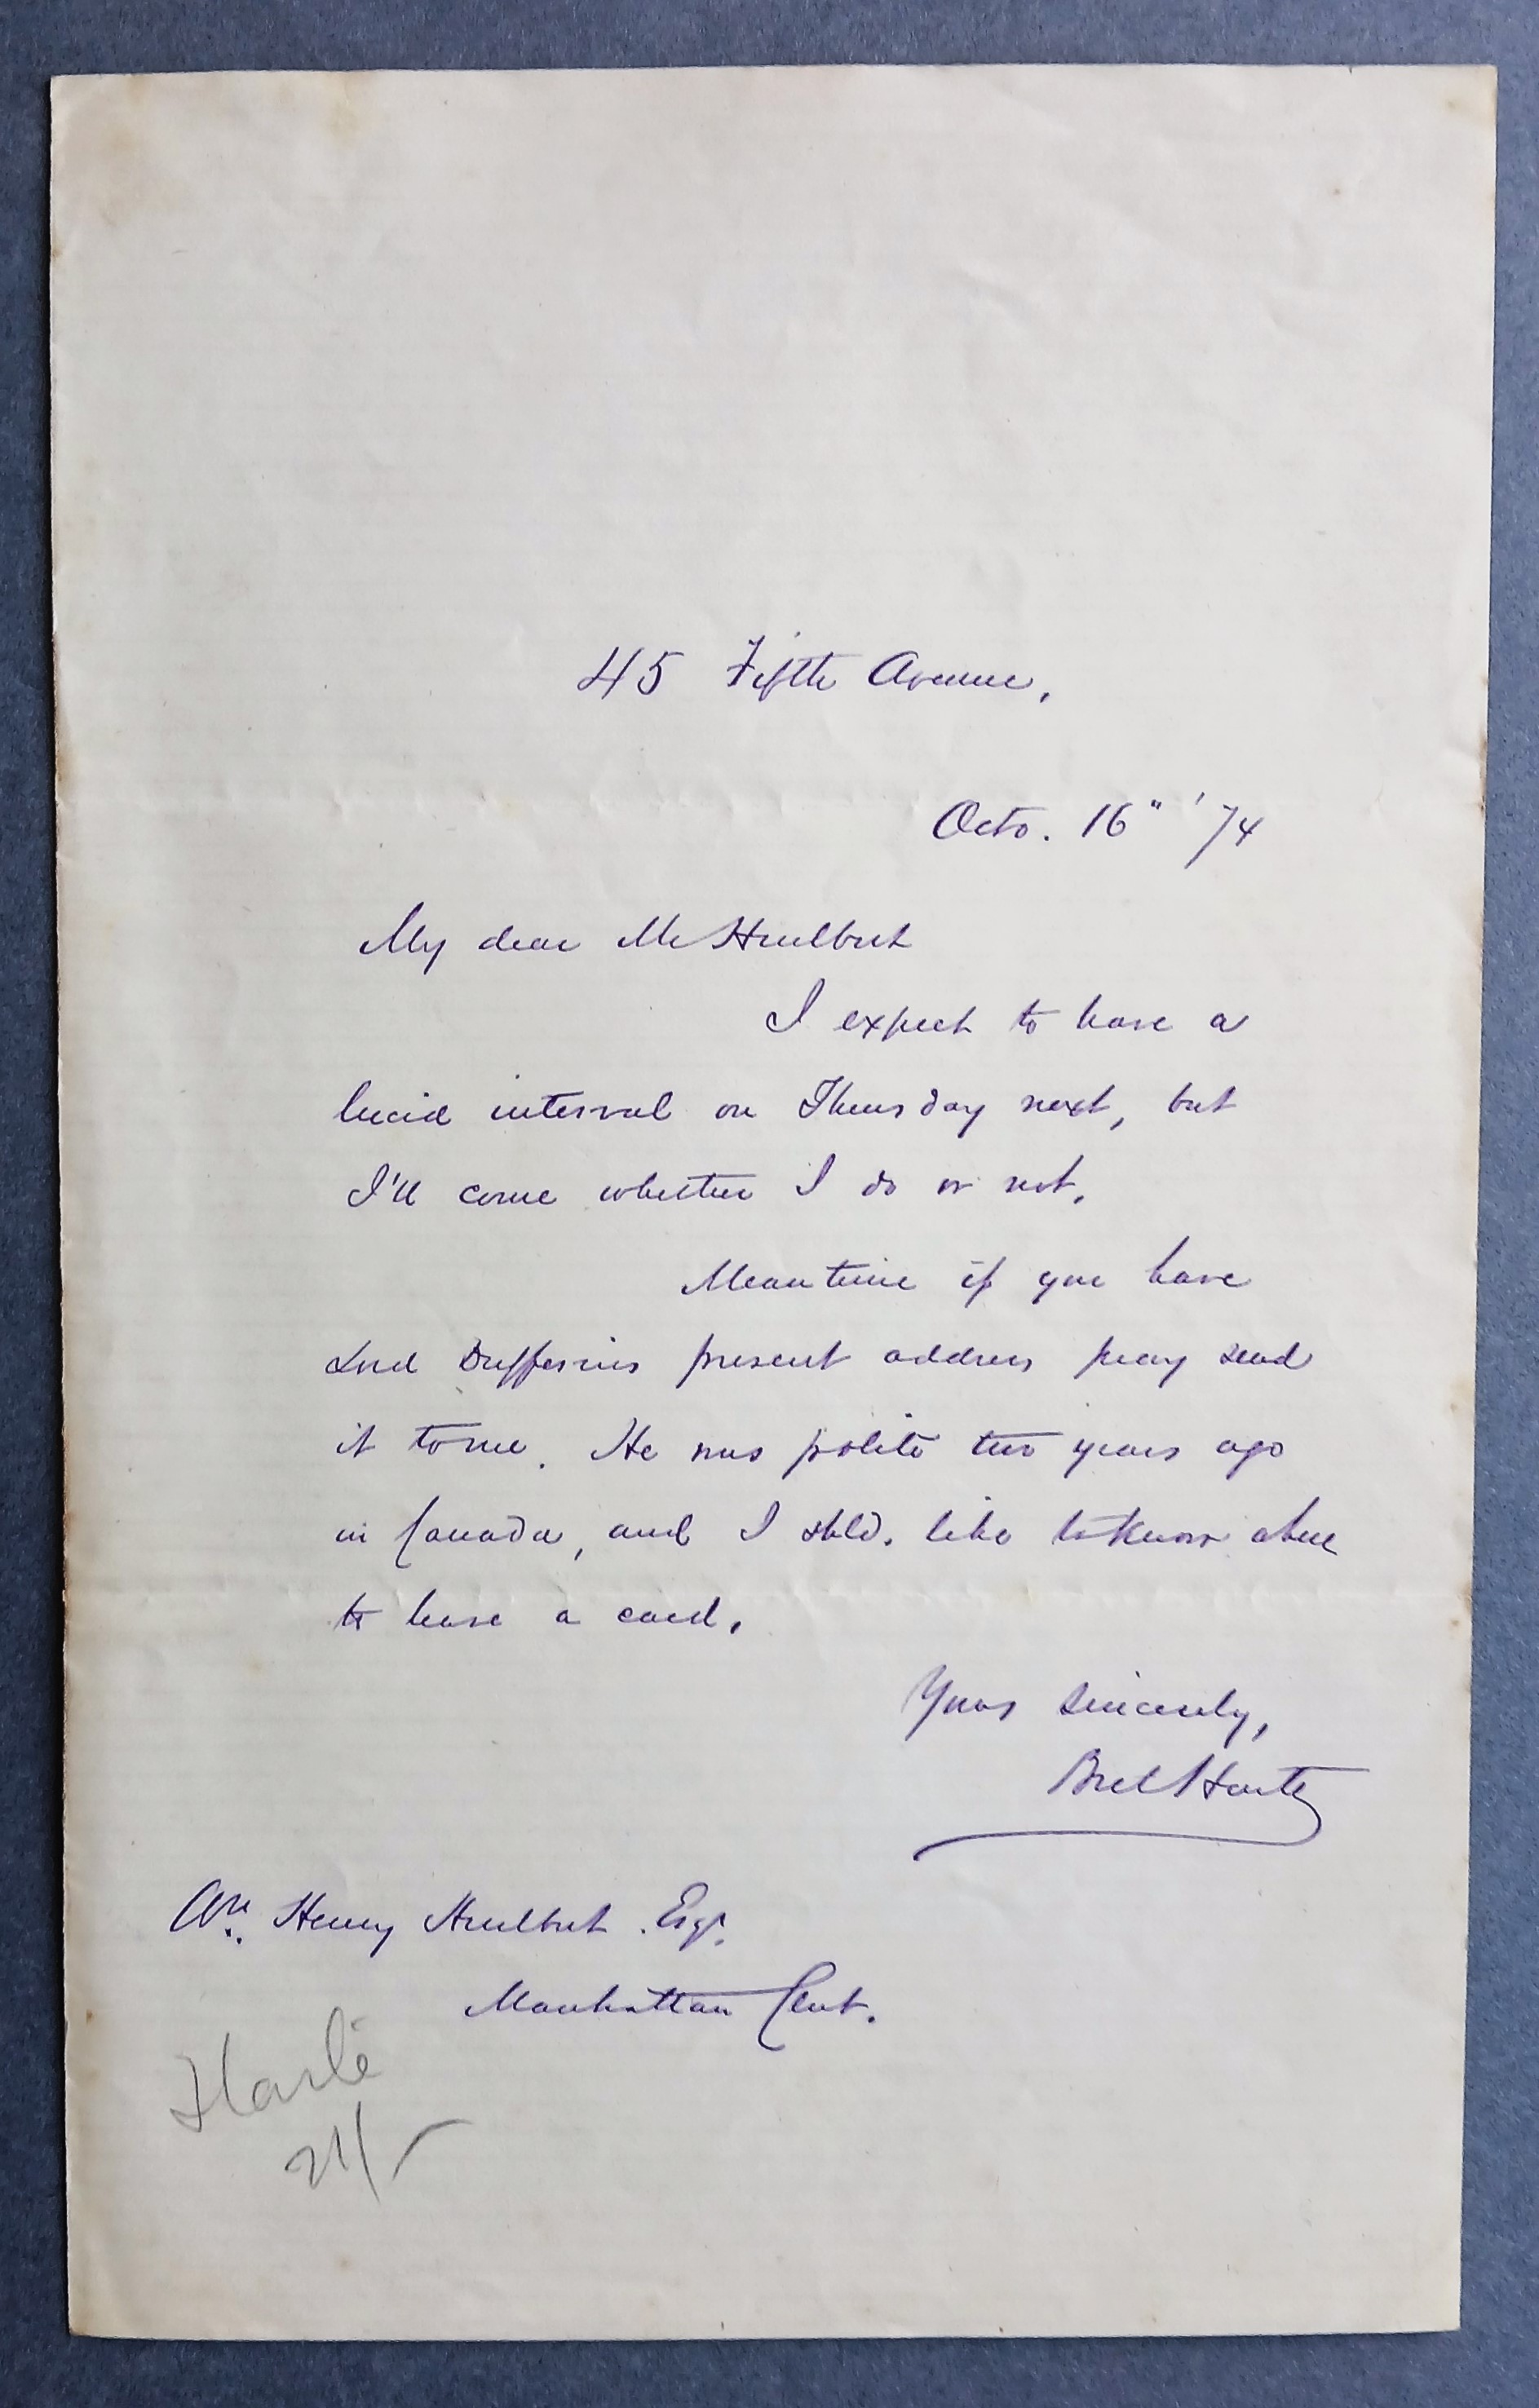 45 Fifth Avenue,
Octo. 16" '74
My dear Mr Hurlbut
I expect to have a
lucid interval on Thursday next, but
I'll come whether I do or not.
Meantime if you have
Lord Dufferin's present address pray send
it to me. He was polite two years ago
in Canada, and I shld. like to know where
to leave a card.
Yours Sincerely,
Bret Harte
Wm. Henry Hurlbut. Esqr.
Manhattan Club.
Harte
21/-